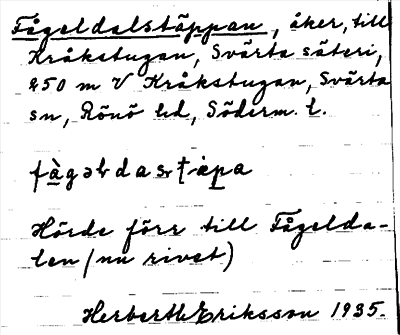 Fågeldalstäppan, åker, till
Kråkstugan, Svärta säteri,
250 m V Kråkstugan, Svärta
sn, Rönö hd, Söderm. l.
Hörde förr till Fågelda-
len (nu rivet)
Herberth Eriksson 1935.